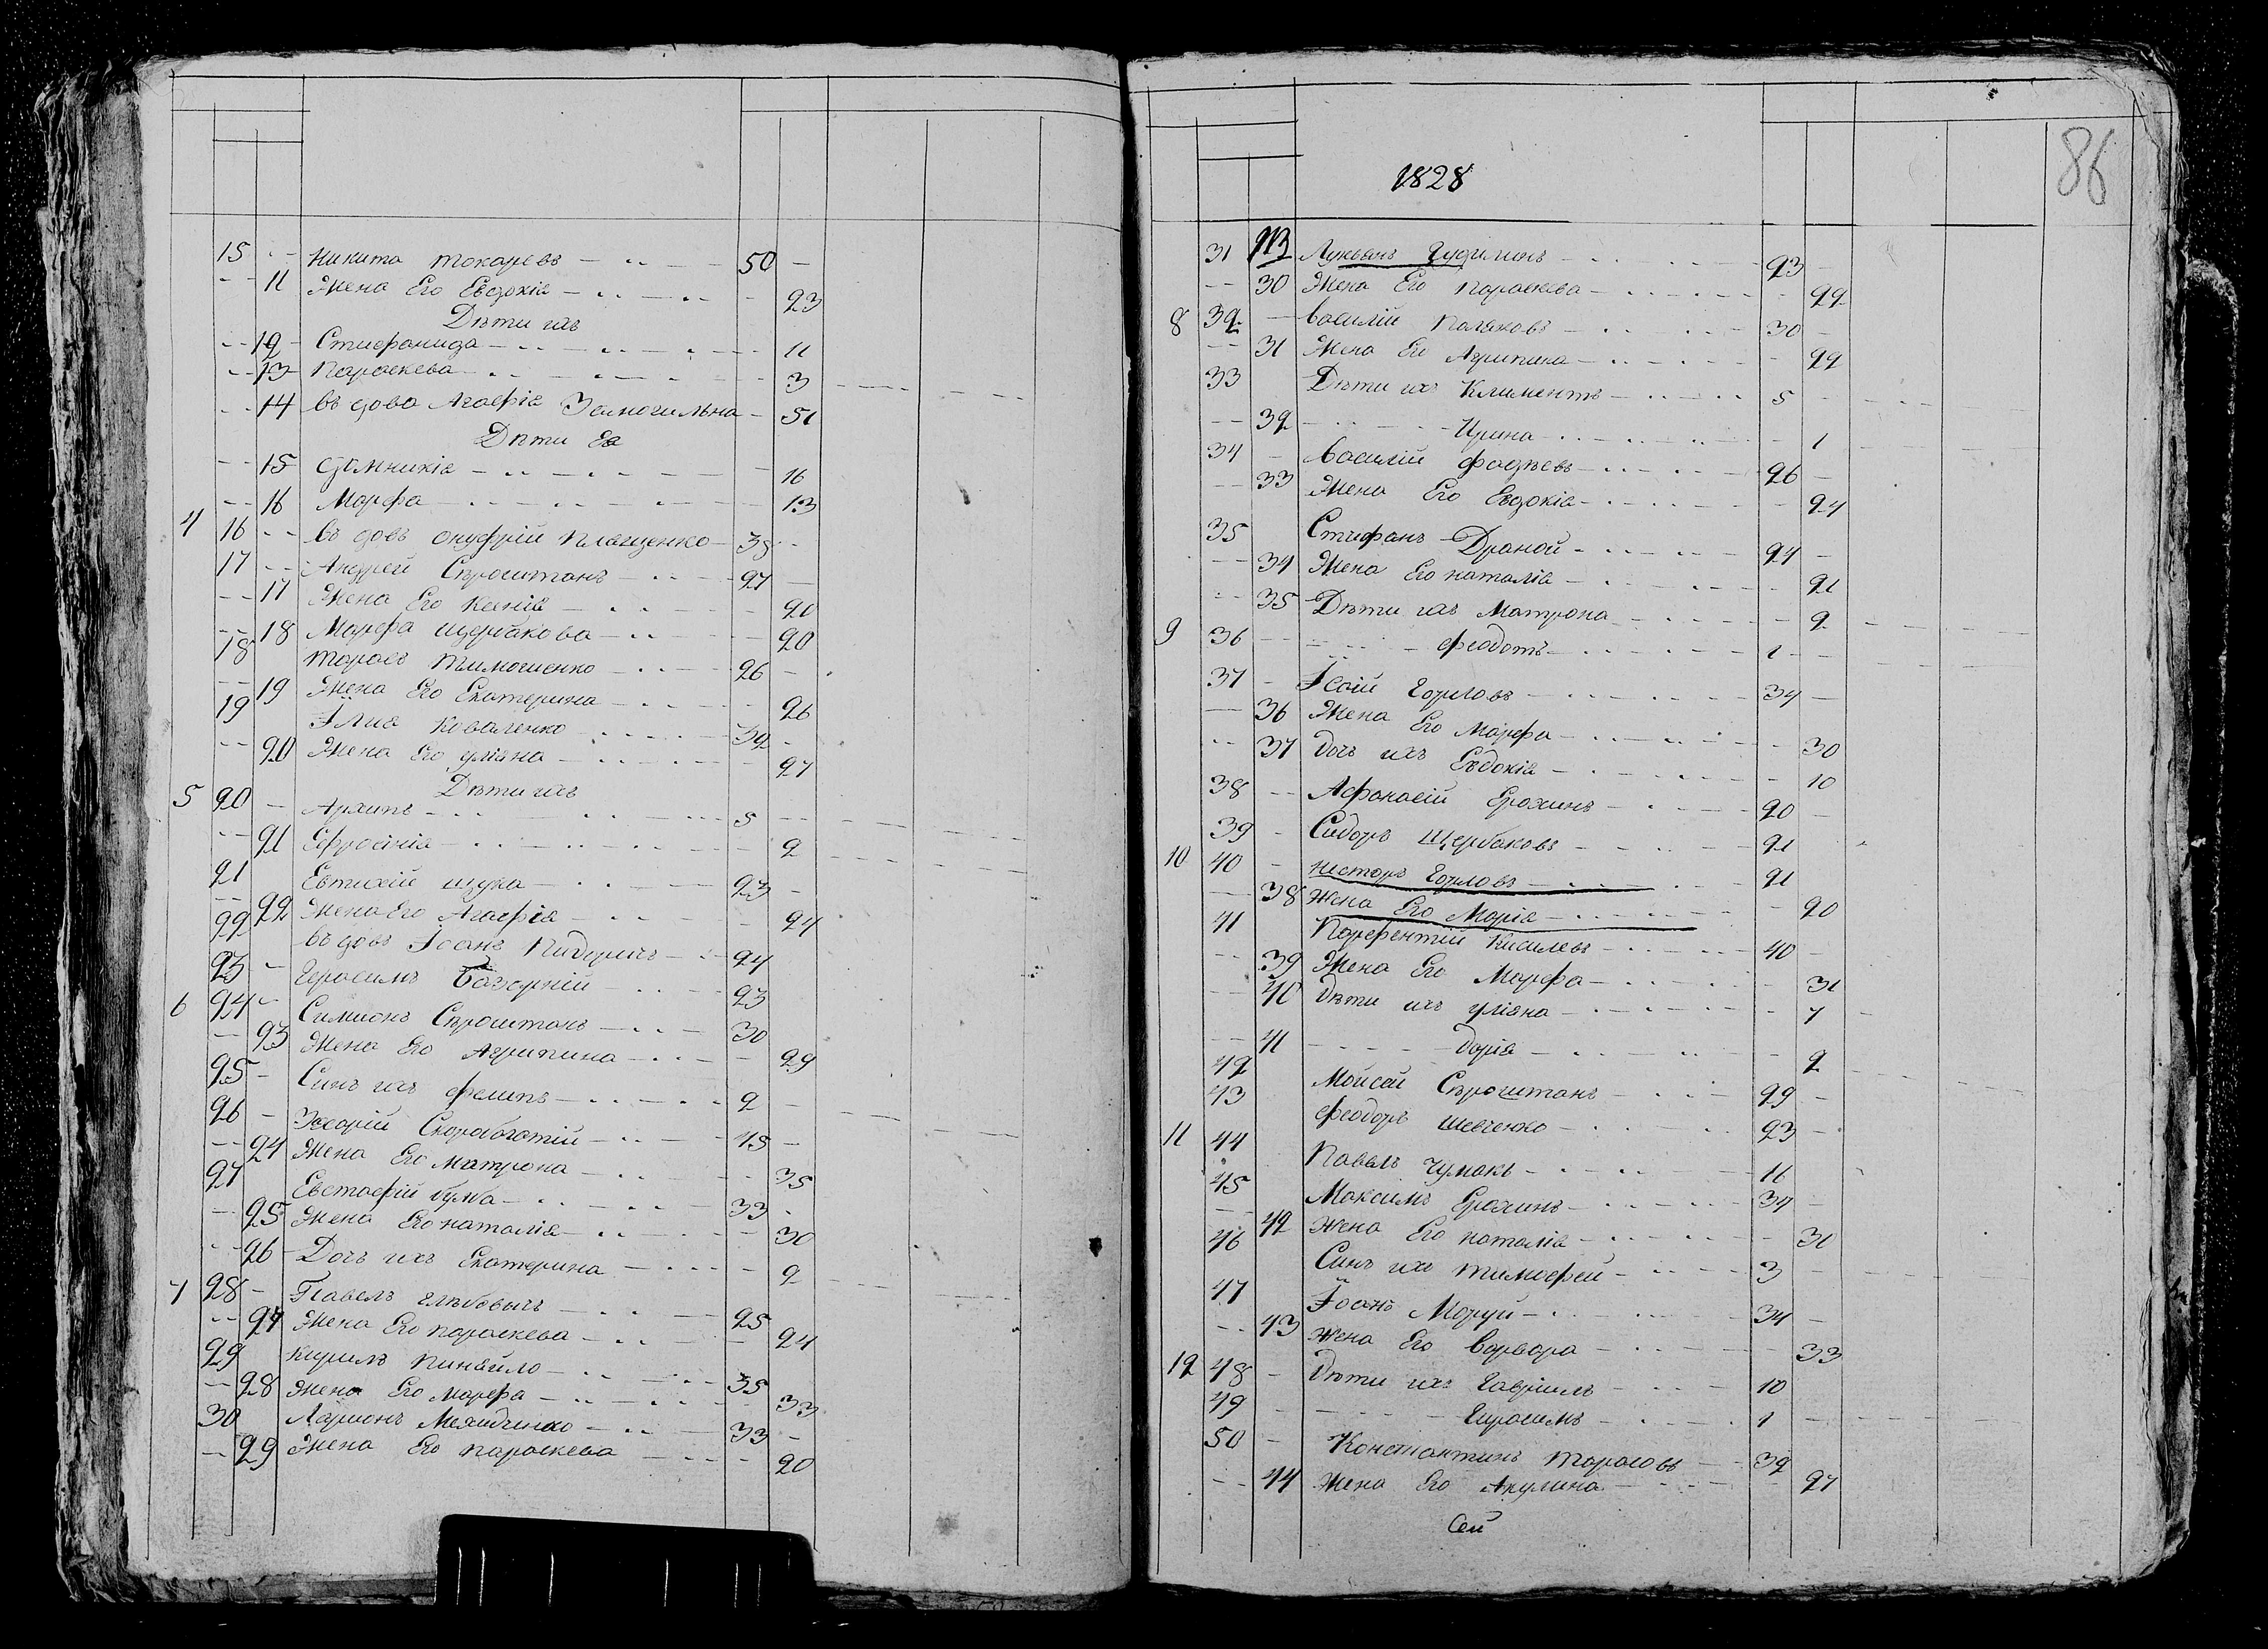 15 Никита Токаревъ 50
11 Жена Его Евдокіа 23
Дѣти ихъ
12 Стиефанида 11
13 Параскева 3
14 въдова Агаефіа Замогильна 51
Дѣти Еа
15 Домникіа 16
16 Марфа 13
4 16 въдовъ Онуфрій Плащенко 35
17 Андрей Сѣроштанъ 27
17 Жена Его Ксеніа 20
18 Марфа Щербакова 20
18 Тарасъ Тимошенко 26
19 Жена Его Екатерина 26
19 Іліа Коваленко 32
20 Жена Его Уліана 27
Дѣти ихъ
5 20 Архипъ 5
21 Ефросініа 2
21 Евтихій Щука 23
22 Жена Его Агаефіа 24
22 въдовъ Іоанъ 24
23 Герасимъ 23
6 24 Симионъ Сѣроштанъ 30
23 Жена Его Агрипина 29
25 Синъ ихъ Филипъ 2
26 Захарій Скорабгатій 45
24 Жена Его Матрона 35
27 Евстаефій Булба 33
25 Жена Его Наталіа 30
26 Дочъ ихъ Екатерина 2
7 28 Павелъ Глѣбовичъ 25
27 Жена Его Параскева 24
29 Кирилъ Пинѣйло 35
28 Жена Его Марфа 33
30 Ларионъ 33
29 Жена Его Параскева 20
86
1828
31 Лукъанъ 23
30 Жена Его Параскева 22
8 32 Василій Полѣковъ 30
31 Жена Его Агрипина 22
33 Дѣти ихъ Климентъ 5
32 Ирина 1
34 Василій Фадѣевъ 26
33 Жена Его Евдокіа 24
35 Стифанъ Драной 24
34 Жена Его Наталіа 21
35 Дѣти ихъ Матрона 2
9 36 Феодотъ 1
37 Ісаій Горловъ 34
36 Жена Его Марфа 30
37 Дочъ ихъ Евдокіа 10
38 Афанасій Ерохинъ 20
39 Сидоръ Щербаковъ 21
10 40 Несторъ Горловъ 21
38 Жена Его Маріа 20
41 Парфентій Киселевъ 40
39 Жена Его Марфа 31
40 Дѣти ихъ Уліана 7
41 Даріа 2
42 Мойсей Сѣроштанъ 29
43 Феодоръ Шевченко 23
11 44 Павелъ Чумакъ 16
45 Максимъ Ерохинъ 34
42 Жена Его Наталіа 30
46 Синъ ихъ Тимофей 3
47 Іоанъ Моруй 34
43 Жена Его Варвара 33
12 48 Дѣти ихъ Гавриилъ 10
49 Герасимъ 1
50 Константинъ Тарасовъ 32
44 Жена Его Акулина 27
Сей